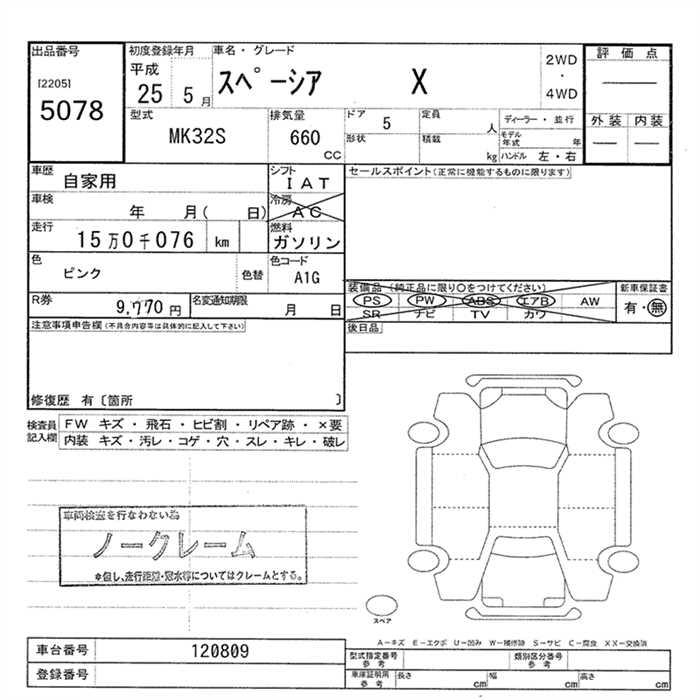 出品番号 初度登録年月 車名・グレード 評価点
[2205] 平成 スペーシア X 2WD
5078 25 5月 ・
4WD
型式 排気量 ドア 定員 外装 内装
MK32S 660 5 人 ディーラー・並行
CC 形状 積載 モデル年式 年
kg ハンドル 左・右
車歴 シフト セールスポイント(正常に機能するものに限ります)
自家用 IAT
車検 冷房
年 月( 日) AC
走行 燃料
15万0千076 km ガソリン
色 色コード
ピンク 色替 A1G
装備品(純正品に限り○をつけてください) 新車保証書
PS PW ABS エアB AW 有・無
SR ナビ TV カワ
R券 名変通知期限
9,770円 月 日
後日品
注意事項申告欄(不具合内容等は具体的に記入して下さい)
修復歴 有〔箇所 〕
検査員記入欄
FW キズ・飛石・ヒビ割・リペア跡・×要
内装 キズ・汚レ・コゲ・穴・スレ・キレ・破レ
車両検査を行なわない為
ノークレーム
*但し、走行距離・冠水等についてはクレームとする。
スペア
A－キズ E－エクボ U－凹み W－補修跡 S－サビ C－腐食 XX－交換済
車台番号 120809
登録番号
型式指定番号 参考 類別区分番号 参考
車庫証明用 参考 長さ cm 幅 cm 高さ cm